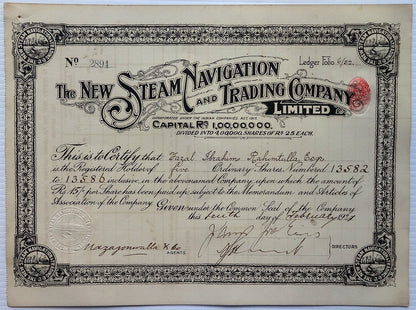 No 2891
Ledger Folio 6/22.
The New Steam Navigation
and Trading Company
Limited
Incorporated under the Indian Companies Act, 1913
Capital Rs 1,00,00,000,
Divided into 4,00,000, Shares of Rs 25 each.
This is to Certify that Fazal Ibrahim Rahimtulla, Esqr
is the Registered Holder of five Ordinary Shares Numbered 13582
to 13586 inclusive, in the abovenamed Company upon which the amount of
Rs 15/- per Share has been paid up, subject to the Memorandum and Articles of
Association of the Company. Given under the Common Seal of the Company
this tenth day of February 1921
& Co
Agents
Directors